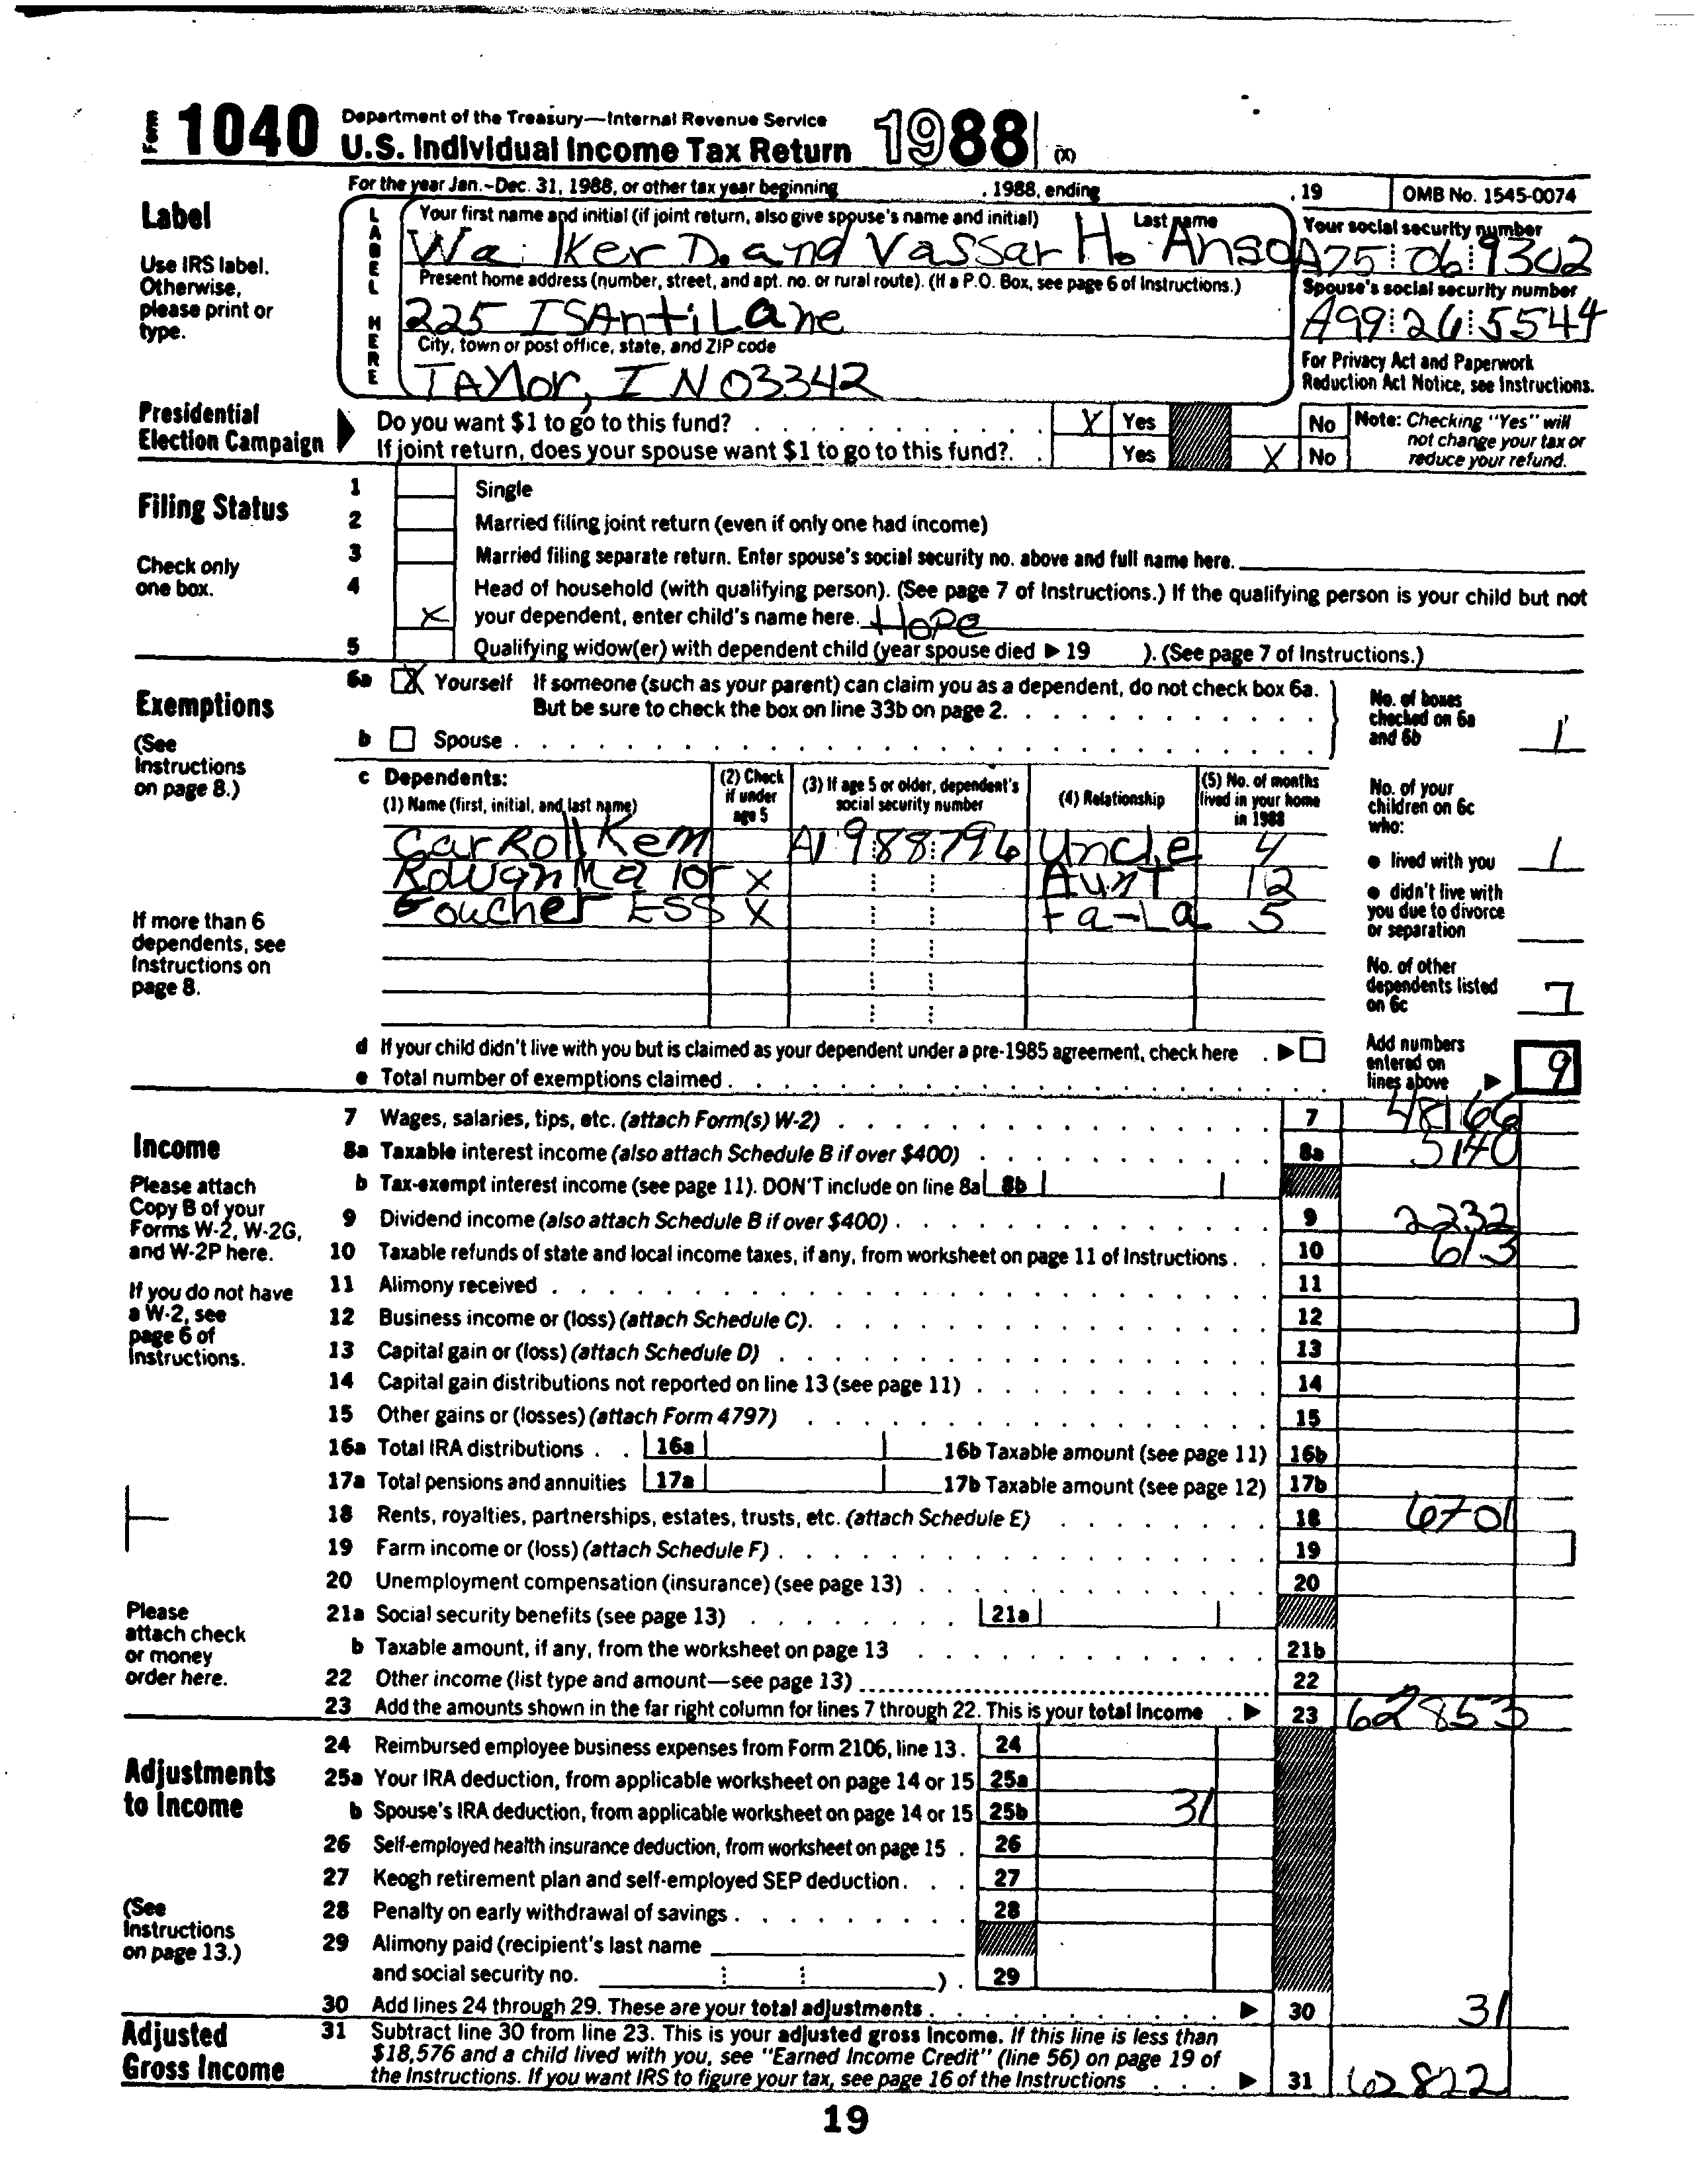 Form 1040 Department of the Treasury—Internal Revenue Service
U.S. Individual Income Tax Return 1988 (X)
For the year Jan.-Dec. 31, 1988, or other tax year beginning , 1988, ending , 19 OMB No. 1545-0074
Label
Use IRS label. Otherwise, please print or type.
LABEL HERE
Your first name and initial (if joint return, also give spouse's name and initial) Last name
Walker D. and Vassar H. Anso
Your social security number
A75 06 9302
Present home address (number, street, and apt. no. or rural route). (If a P.O. Box, see page 6 of Instructions.)
225 ISAnti Lane
Spouse's social security number
A99 26 5544
City, town or post office, state, and ZIP code
TAYlor, IN 03342
For Privacy Act and Paperwork Reduction Act Notice, see Instructions.
Presidential Election Campaign
Do you want $1 to go to this fund? X Yes No
If joint return, does your spouse want $1 to go to this fund? Yes X No
Note: Checking "Yes" will not change your tax or reduce your refund.
Filing Status
Check only one box.
1 Single
2 Married filing joint return (even if only one had income)
3 Married filing separate return. Enter spouse's social security no. above and full name here.
4 Head of household (with qualifying person). (See page 7 of Instructions.) If the qualifying person is your child but not
X your dependent, enter child's name here. Hope
5 Qualifying widow(er) with dependent child (year spouse died ▶ 19 ). (See page 7 of Instructions.)
Exemptions
(See Instructions on page 8.)
6a X Yourself If someone (such as your parent) can claim you as a dependent, do not check box 6a.
But be sure to check the box on line 33b on page 2.
b Spouse
No. of boxes checked on 6a and 6b 1
c Dependents:
(1) Name (first, initial, and last name) (2) Check if under age 5 (3) If age 5 or older, dependent's social security number (4) Relationship (5) No. of months lived in your home in 1988
Carroll Kem A1 9 88 796 Uncle 4
X Aunt 12
ESS X Fa-La 5
If more than 6 dependents, see Instructions on page 8.
No. of your children on 6c who:
● lived with you 1
● didn't live with you due to divorce or separation
No. of other dependents listed on 6c 7
d If your child didn't live with you but is claimed as your dependent under a pre-1985 agreement, check here ▶
e Total number of exemptions claimed
Add numbers entered on lines above ▶ 9
Income
Please attach Copy B of your Forms W-2, W-2G, and W-2P here.
If you do not have a W-2, see page 6 of Instructions.
Please attach check or money order here.
7 Wages, salaries, tips, etc. (attach Form(s) W-2) 7 48166
8a Taxable interest income (also attach Schedule B if over $400) 8a 5140
b Tax-exempt interest income (see page 11). DON'T include on line 8a 8b
9 Dividend income (also attach Schedule B if over $400) 9 2232
10 Taxable refunds of state and local income taxes, if any, from worksheet on page 11 of Instructions 10 613
11 Alimony received 11
12 Business income or (loss) (attach Schedule C) 12
13 Capital gain or (loss) (attach Schedule D) 13
14 Capital gain distributions not reported on line 13 (see page 11) 14
15 Other gains or (losses) (attach Form 4797) 15
16a Total IRA distributions 16a 16b Taxable amount (see page 11) 16b
17a Total pensions and annuities 17a 17b Taxable amount (see page 12) 17b
18 Rents, royalties, partnerships, estates, trusts, etc. (attach Schedule E) 18 6701
19 Farm income or (loss) (attach Schedule F) 19
20 Unemployment compensation (insurance) (see page 13) 20
21a Social security benefits (see page 13) 21a
b Taxable amount, if any, from the worksheet on page 13 21b
22 Other income (list type and amount—see page 13) 22
23 Add the amounts shown in the far right column for lines 7 through 22. This is your total income ▶ 23 62853
Adjustments to Income
(See Instructions on page 13.)
24 Reimbursed employee business expenses from Form 2106, line 13. 24
25a Your IRA deduction, from applicable worksheet on page 14 or 15 25a
b Spouse's IRA deduction, from applicable worksheet on page 14 or 15 25b 31
26 Self-employed health insurance deduction, from worksheet on page 15 26
27 Keogh retirement plan and self-employed SEP deduction 27
28 Penalty on early withdrawal of savings 28
29 Alimony paid (recipient's last name
and social security no. ) 29
30 Add lines 24 through 29. These are your total adjustments ▶ 30 31
Adjusted Gross Income
31 Subtract line 30 from line 23. This is your adjusted gross income. If this line is less than
$18,576 and a child lived with you, see "Earned Income Credit" (line 56) on page 19 of
the Instructions. If you want IRS to figure your tax, see page 16 of the Instructions ▶ 31 62822
19